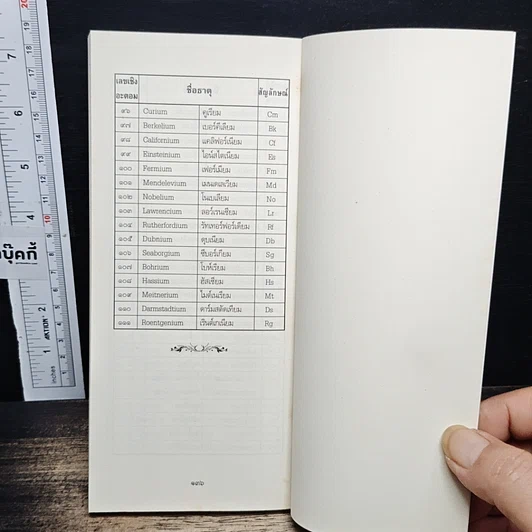 เลขเชิง อะตอม ชื่อธาตุ สัญลักษณ์
๙๖ Curium คูเรียม Cm
๙๗ Berkelium เบอร์คีเลียม Bk
๙๘ Californium แคลิฟอร์เนียม Cf
๙๙ Einsteinium ไอน์สไตเนียม Es
๑๐๐ Fermium เฟอร์เมียม Fm
๑๐๑ Mendelevium เมนเดลเวียม Md
๑๐๒ Nobelium โนเบเลียม No
๑๐๓ Lawrencium ลอว์เรนเซียม Lr
๑๐๔ Rutherfordium รัทเทอร์ฟอร์เดียม Rf
๑๐๕ Dubnium ดุบเนียม Db
๑๐๖ Seaborgium ซีบอร์เกียม Sg
๑๐๗ Bohrium โบห์เรียม Bh
๑๐๘ Hassium ฮัสเซียม Hs
๑๐๙ Meitnerium ไมต์เนเรียม Mt
๑๑๐ Darmstadtium ดาร์มสตัดเทียม Ds
๑๑๑ Roentgenium เรินต์เกเนียม Rg
inches